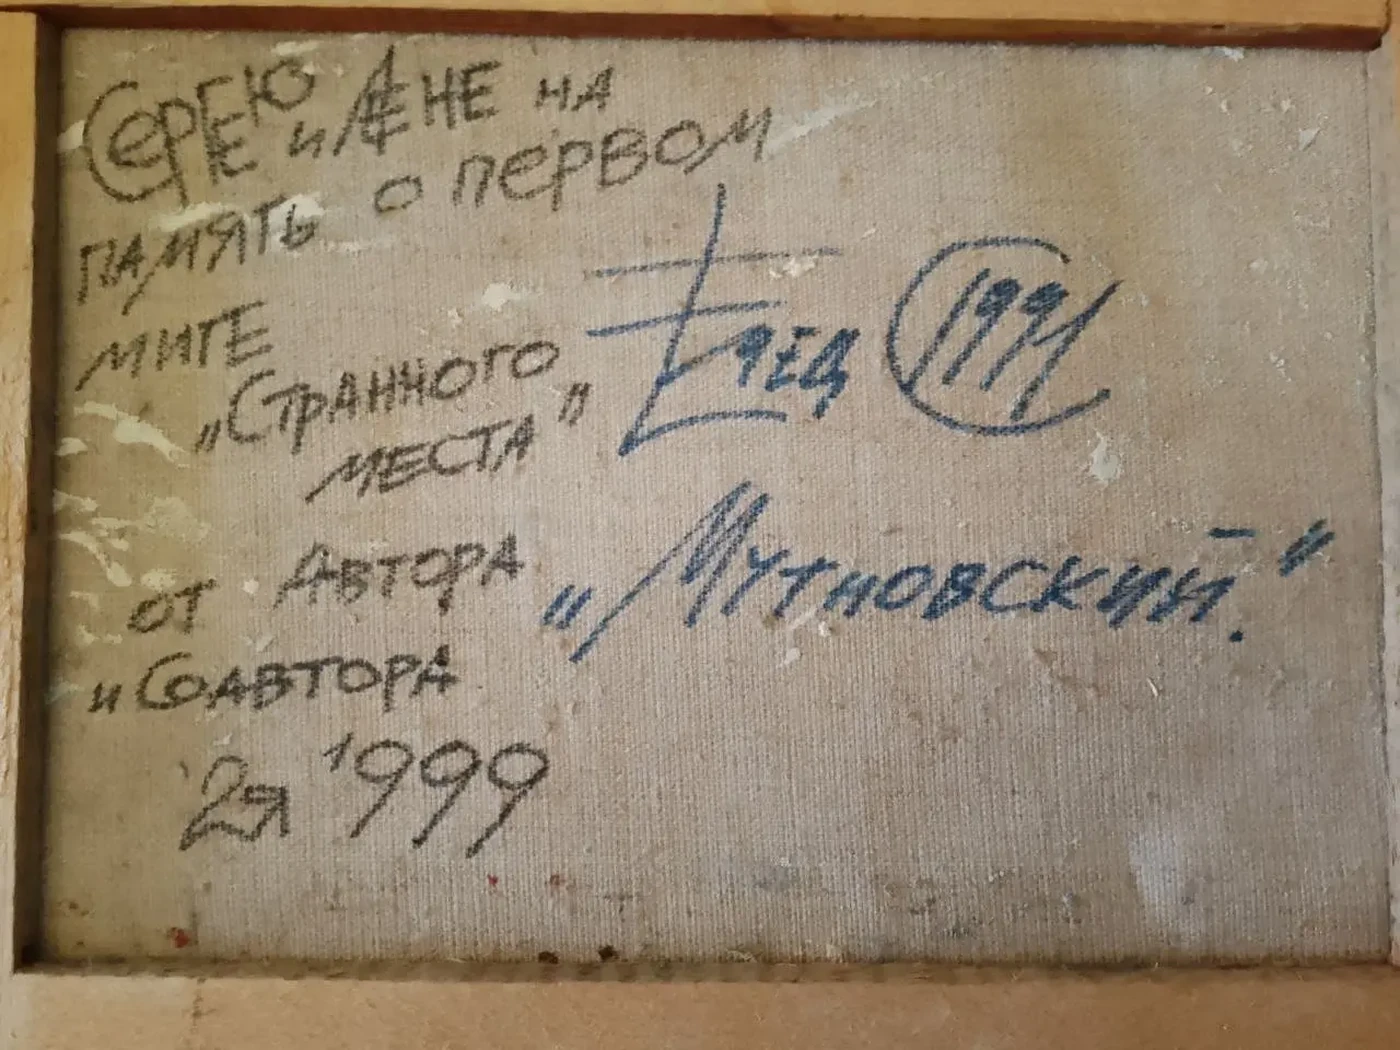 СЕРГЕЮ и ЛЕНЕ НА
ПАМЯТЬ О ПЕРВОМ
МИГЕ
„СТРАННОГО
МЕСТА"
ОТ АВТОРА
и СОАВТОРА
2я 1999
1991
„Мутновский."